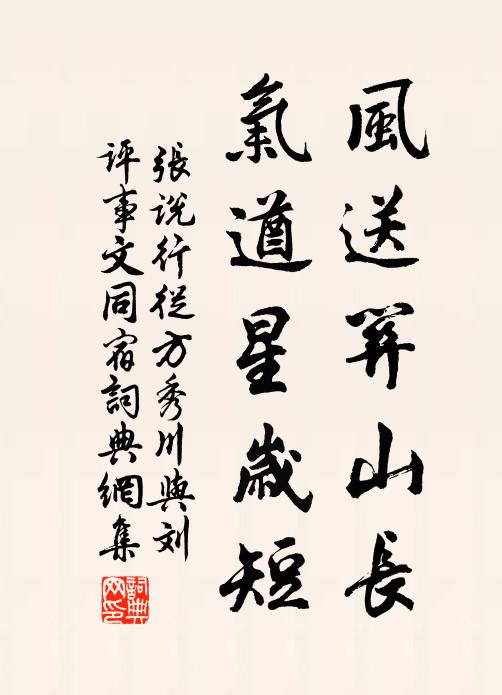 風送關山長
氣遒星歲短
張說行從方秀川與刘
評事文同宿詞典網集
詞典
网印